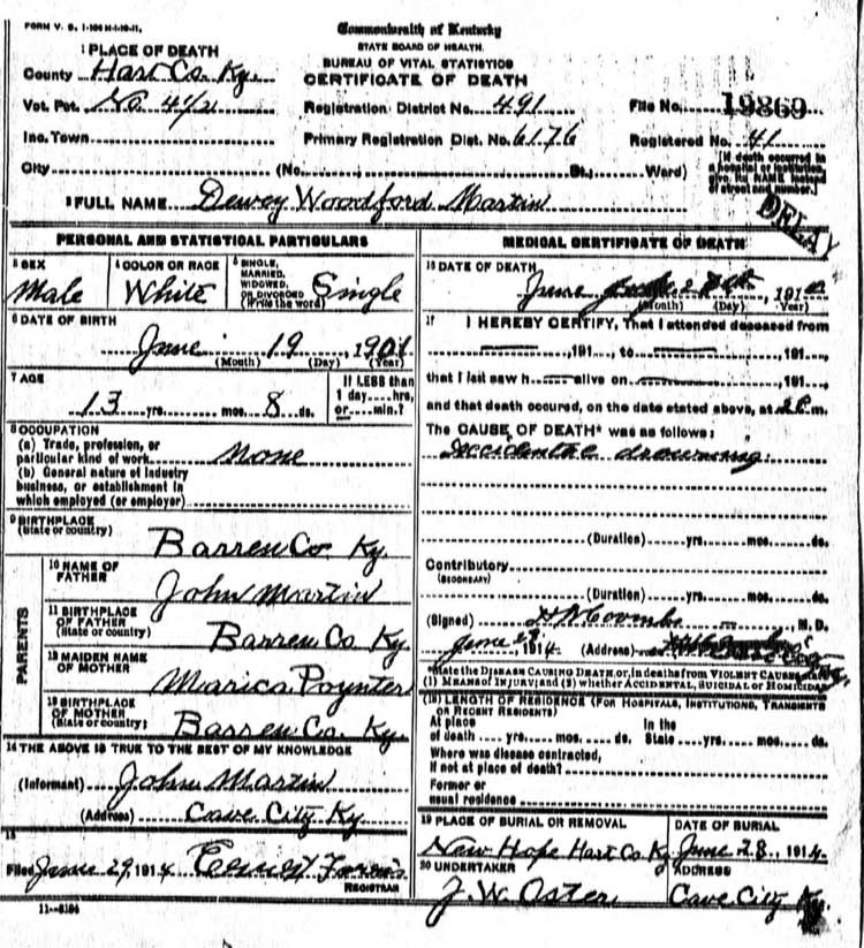 FORM V. S. 1-
Commonwealth of Kentucky
STATE BOARD OF HEALTH.
BUREAU OF VITAL STATISTICS
CERTIFICATE OF DEATH
1 PLACE OF DEATH
County Hart Co. Ky.
Vot. Pct. No. 4
Registration District No. 491
File No. 19869
Inc. Town
Primary Registration Dist. No. 6176
Registered No. 41
City (No. St., Ward)
[If death occurred in
a hospital or institution,
give its NAME instead
of street and number.]
2 FULL NAME Dewey Woodford Martin
DELAY
PERSONAL AND STATISTICAL PARTICULARS
3 SEX
Male
4 COLOR OR RACE
White
5 SINGLE,
MARRIED,
WIDOWED,
OR DIVORCED
(Write the word)
Single
6 DATE OF BIRTH
June 19, 1901
(Month) (Day) (Year)
7 AGE
13 yrs. mos. 8 ds.
If LESS than
1 day....hrs,
or....min.?
8 OCCUPATION
(a) Trade, profession, or
particular kind of work None
(b) General nature of industry
business, or establishment in
which employed (or employer)
9 BIRTHPLACE
(State or country)
Barren Co. Ky.
PARENTS
10 NAME OF
FATHER
John Martin
11 BIRTHPLACE
OF FATHER
(State or country)
Barren Co Ky.
12 MAIDEN NAME
OF MOTHER
Marica Poynter
13 BIRTHPLACE
OF MOTHER
(State or country)
Barren Co. Ky.
14 THE ABOVE IS TRUE TO THE BEST OF MY KNOWLEDGE
(Informant) John Martin
(Address) Cave City Ky
15
Filed June 29, 1914
REGISTRAR
11--5184
MEDICAL CERTIFICATE OF DEATH
16 DATE OF DEATH
June , 191
(Month) (Day) (Year)
17 I HEREBY CERTIFY, That I attended deceased from
,191...., to ,191....,
that I last saw h alive on ,191....,
and that death occured, on the date stated above, at 2 P. m.
The CAUSE OF DEATH* was as follows:
Accidental drowning.
(Duration) yrs. mos. ds.
Contributory
(SECONDARY)
(Duration) yrs. mos. ds.
(Signed) Coombs M. D.
June , 1914 (Address)
*State the DISEASE CAUSING DEATH, or, in deaths from VIOLENT CAUSES
(1) MEANS OF INJURY; and (2) whether ACCIDENTAL, SUICIDAL or HOMICIDAL
(18) LENGTH OF RESIDENCE (FOR HOSPITALS, INSTITUTIONS, TRANSIENTS
OR RECENT RESIDENTS)
At place In the
of death .... yrs. mos. ds. State .... yrs. mos. ds.
Where was disease contracted,
if not at place of death?
Former or
usual residence
19 PLACE OF BURIAL OR REMOVAL
New Hope Hart Co. Ky
DATE OF BURIAL
June 28., 1914
20 UNDERTAKER
J. W. Oster
ADDRESS
Cave City Ky.